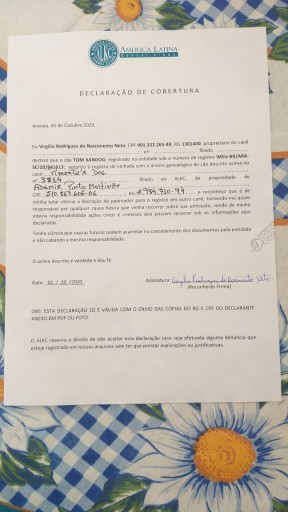 ALKC
AMERICA LATINA
KENNEL CLUBE
DECLARAÇÃO DE COBERTURA
Aracaju, 05 de Outubro 2020.
Eu Virgílio Rodrigues do Nascimento Neto, CPF 901.332.265-49, RG 1301400, proprietário do canil
nº filiado
declaro que o cão TOM XANDOO, registrado na entidade sob o número de registro
autorizo o registro de ninhada com a minha genealógica do cão descrito acima no
canil Pimentel's Dog
nº 3814, filiado ao ALKC, de propriedade de
ADEMIR Pinto
CPF: RG e reconheço que é de
minha total ciência a liberação do padreador para o registro em outro canil, tornando-me assim
responsável por qualquer causa futura que venha recorrer sobre sua utilização, sendo de minha
inteira responsabilidade ações cíveis e criminais que possam recorrer sob as informações aqui
declaradas.
Tenho ciência que causas futuras podem acarretar no cancelamento dos documentos pela entidade
e não cabendo a mesma responsabilidade.
O acima descrito é verdade e dou fé
Data: 01 / 10 /2020 Assinatura: Virgílio Rodrigues do Nascimento Neto
(Reconhecer Firma)
OBS: ESTA DECLARAÇÃO SÓ É VÁLIDA COM O ENVIO DAS CÓPIAS DO RG E CPF DO DECLARANTE
ANEXO EM PDF OU FOTO.
O ALKC reserva o direito de não aceitar esta declaração caso seja efetuada alguma denúncia que
esteja registrado em nossos arquivos sem ter que prestar explicações ou justificativas.